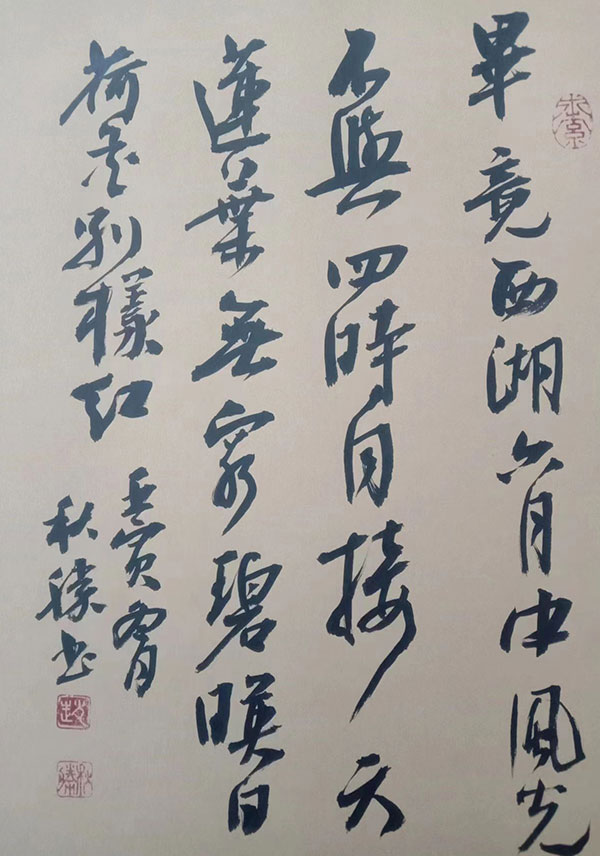 畢竟西湖六月中風光
不與四時同接天
蓮葉無窮碧暎日
荷花別樣紅
壬寅月
秋勝書